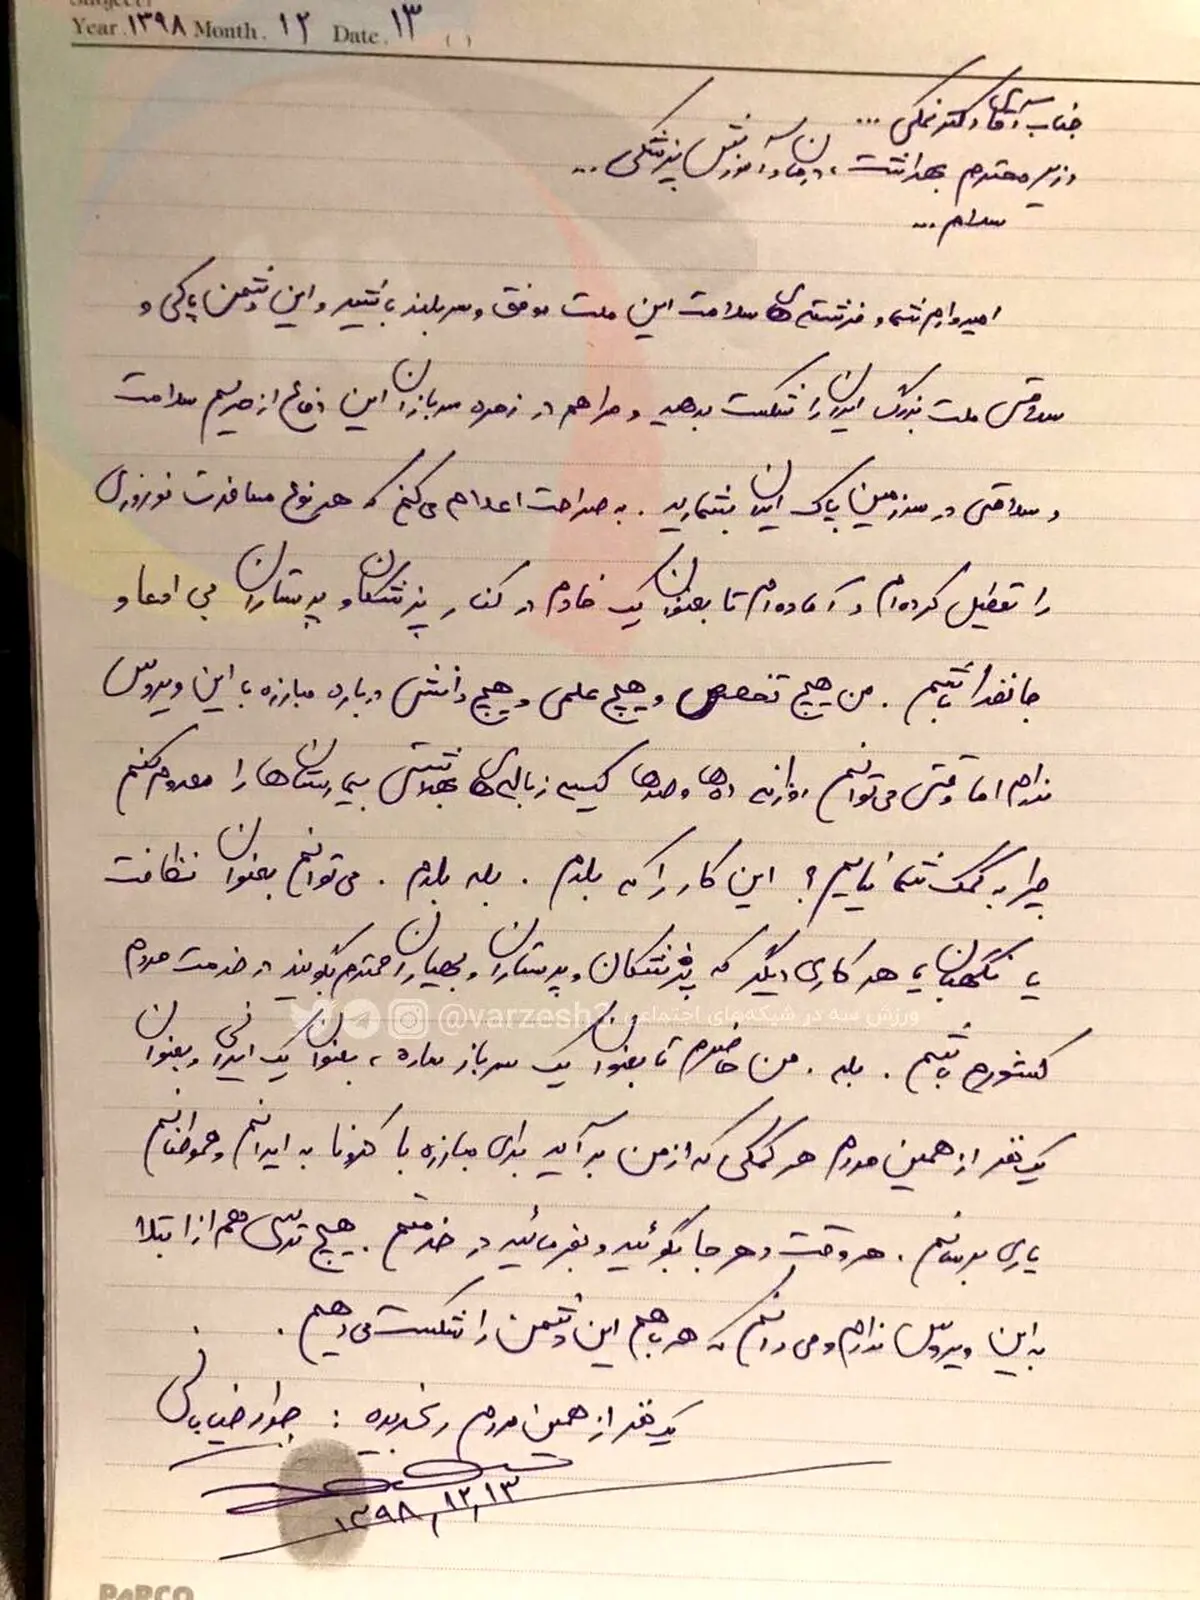 Subject:
Year. ۱۳۹۸ Month. ۱۲ Date. ۱۳ ( )
جناب آقای دکتر نمکی ...
وزیر محترم بهداشت، درمان و آموزش پزشکی ...
سلام ...
امیدوارم شما و فرشته‌های سلامت این ملت موفق و سربلند باشید و این دشمن پاکی و
سلامتی ملت بزرگ ایران را شکست بدهید و مرا هم در زمره سربازان این دفاع از حریم سلامت
و سلامتی در سرزمین پاک ایران بشمارید. به صراحت اعلام می‌کنم که هر نوع مسافرت نوروزی
را تعطیل کرده‌ام و آماده‌ام تا بعنوان یک خادم در کنار پزشکان و پرستاران بی ادعا و
جانفدا باشم. من هیچ تخصص و هیچ علمی و هیچ دانشی درباره مبارزه با این ویروس
ندارم اما وقتی می‌توانم روزانه ده‌ها و صدها کیسه زباله‌های بهداشتی بیمارستان‌ها را معدوم کنم
چرا به کمک شما نیایم؟ این کار را که بلدم. بله بلدم. می‌توانم بعنوان نظافت
یا نگهبان یا هر کاری دیگر که پزشکان و پرستاران و بهیاران محترم بگویند در خدمت مردم
ورزش سه در شبکه‌های اجتماعی @varzesh3
کشورم باشم. بله. من حاضرم تا بعنوان یک سرباز ساده، بعنوان یک ایرانی و بعنوان
یک نفر از همین مردم هر کمکی که از من بر آید برای مبارزه با کرونا به ایرانم و هموطنانم
یاری برسانم. هر وقت و هر جا بگوئید و بفرمائید در خدمتم. هیچ ترسی هم از ابتلا
به این ویروس ندارم و می‌دانم که همه با هم این دشمن را شکست می‌دهیم.
یک نفر از همین مردم رنجدیده: جواد خیابانی
۱۳۹۸,۱۲,۱۳
PAPCO